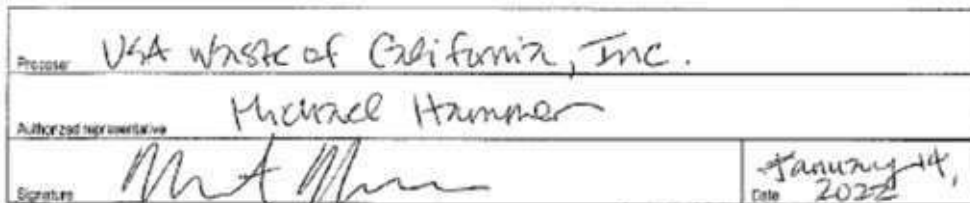 Proposer USA Waste of California, Inc.
Authorized representative Michael Hammer
Signature
January 14,
Date 2022